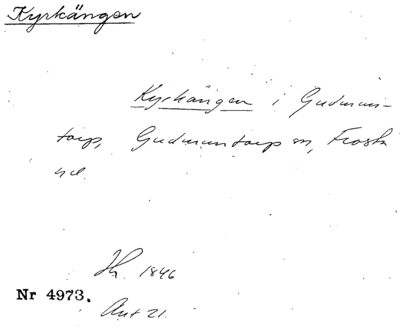 Kyrkängen
Kyrkängen i Gudmun-
torp, Gudmuntorp sn, Frosta
hd.
1846
Nr 4973.
Ant 21.